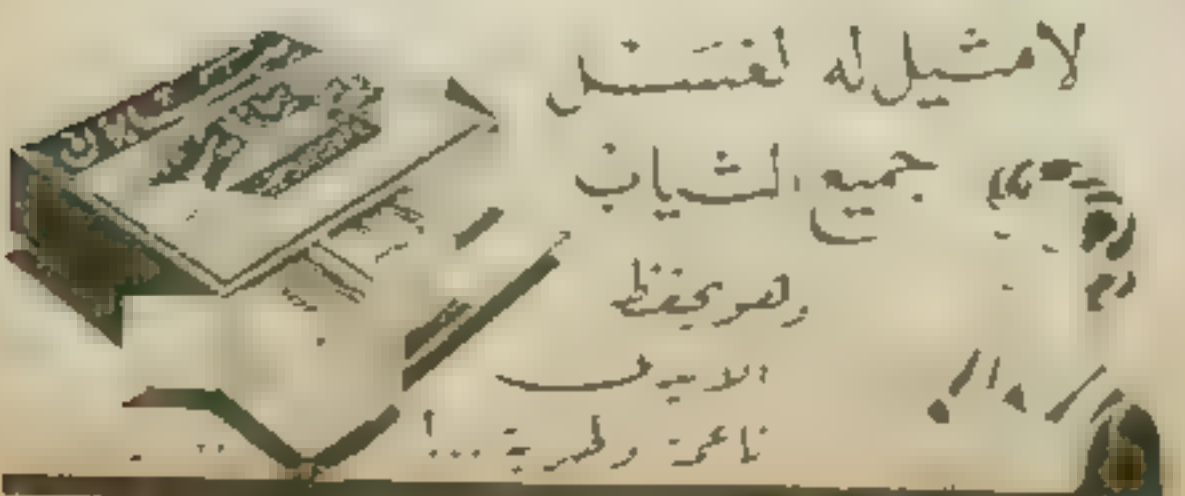 لا مثيل له لغسل
جميع الثياب
وهو يحفظ
الايدي
ناعمة وطرية ...!